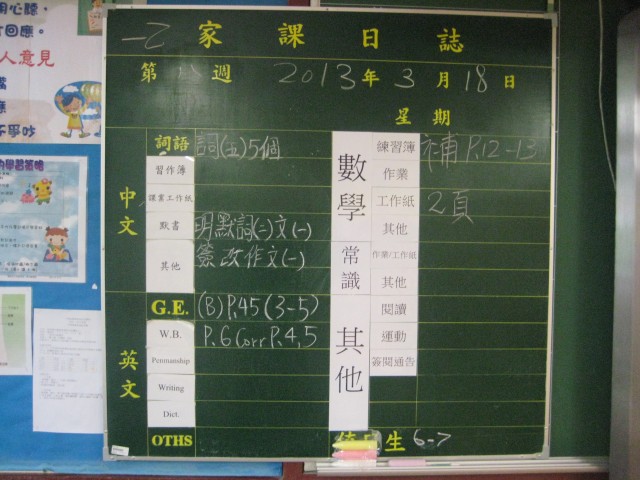 用心聽，
回應。
人意見
一乙 家課日誌
第 週 2013年3月18日
星期
中文
詞語 詞(五)5個
習作簿
課業工作紙
默書 明默詞(二)文(一)
其他 簽改作文(一)
英文
G.E. (B) P.45 (3-5)
W.B. P.6 Corr P.4,5
Penmanship
Writing
Dict.
OTHS
數學
練習簿 補 P.12-13
作業
工作紙 2頁
其他
常識
作業/工作紙
其他
其他
閱讀
運動
簽閱通告
生 6-7